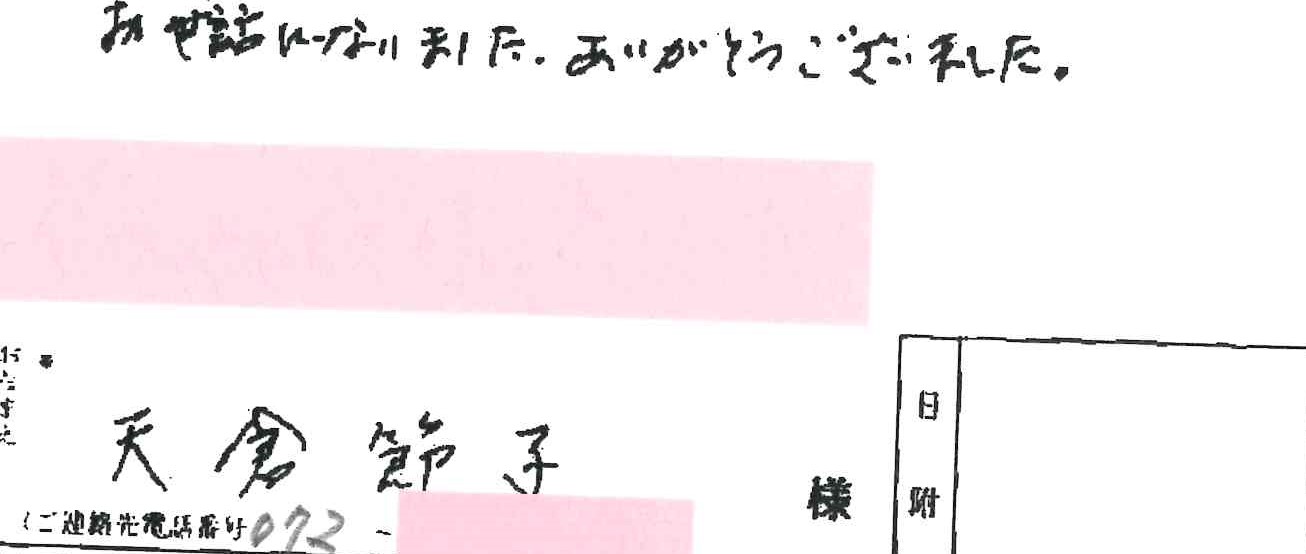 お世話になりました。ありがとうございました。
天倉節子 様
(ご連絡先電話番号 072 -
日附